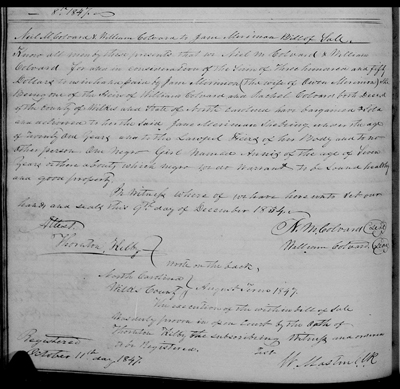 8th 1847
Neil M. Colvard & William Colvard to Jane Merriman Bill of Sale
Know all men by these presents that we Neil M Colvard & William
Colvard for was in consideration of the Sum of three hundred and fifty
Dollars to us in hand paid by Jane Merriman (the wife of Owen Merriman) She
Being one of the Heirs of William Colvard and Rachel Colvard both Deced
of the County of Wilkes and State of North Carolina have Bargained & Sold
and delivered to her the Said Jane Merriman She being under the age
of twenty one years and to the Lawful Heirs of her Body and to no
other person One Negro Girl Named of the age of
years where negro we do warrant to be Sound healthy
and good property
In Witness where of we have hereunto Set our
hands and seals this 9th day of December 1844.
Attest N. M. Colvard (seal)
Thornton Kilby William Colvard (seal)
work on the back,
North Carolina
Wilkes County August Term 1847.
The execution of the within bill of Sale
was duly proven in open Court by the oath of
Thornton Kilby the subscribing Witness and ordered
to be Registered. Test
Registered W. Mastin Clk
October 11th day 1847.